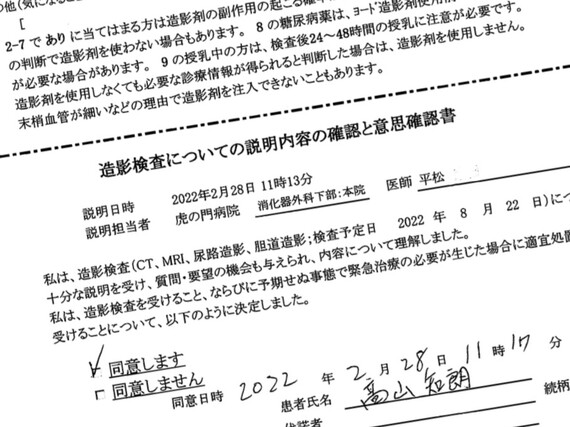 の他(気になること
[
2-7で ありに当てはまる方は造影剤の副作用の起こる確率
の判断で造影剤を使わない場合もあります。8の糖尿病薬は、ヨード造影剤使用
が必要な場合があります。9の授乳中の方は、検査後24～48時間の授乳に注意が必要です。
造影剤を使用しなくても必要な診療情報が得られると判断した場合は、造影剤を使用しません。
末梢血管が細いなどの理由で造影剤を注入できないこともあります。
造影検査についての説明内容の確認と意思確認書
説明日時 2022年2月28日 11時13分
説明担当者 虎の門病院 消化器外科下部:本院 医師 平松
私は、造影検査(CT、MRI、尿路造影、胆道造影;検査予定日 2022 年 8 月 22 日)につ
十分な説明を受け、質問・要望の機会も与えられ、内容について理解しました。
私は、造影検査を受けること、ならびに予期せぬ事態で緊急治療の必要が生じた場合に適宜処置
受けることについて、以下のように決定しました。
同意します
□ 同意しません
同意日時 2022 年 2 月 28 日 11 時 17 分
患者氏名 高山 知朗 続柄
代諾者